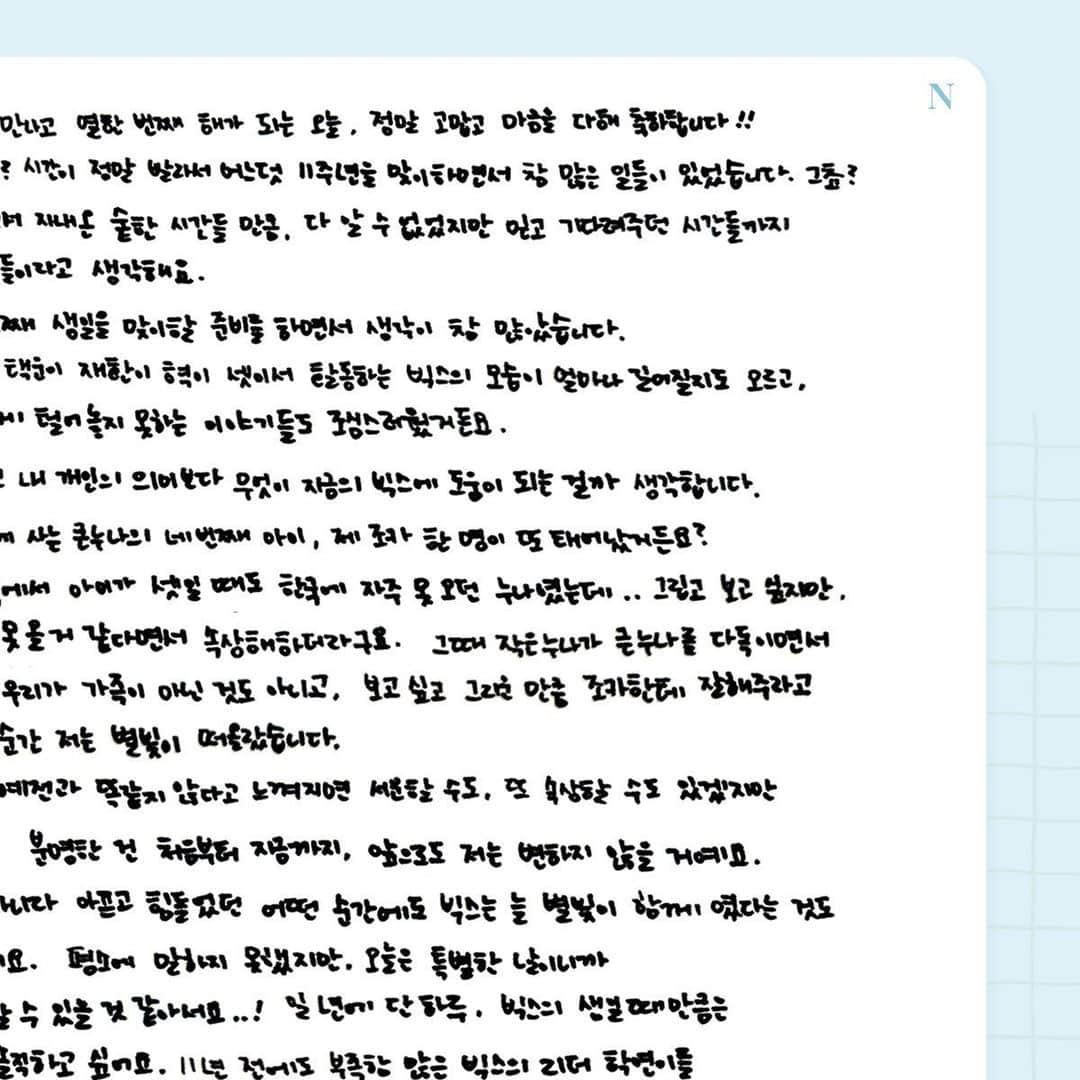 N
만나고 열한 번째 해가 되는 오늘, 정말 고맙고 마음을 다해 축하합니다!!
? 시간이 정말 빨라서 어느덧 11주년을 맞이하면서 참 많은 일들이 있었습니다. 그쵸?
지내온 숱한 시간들 만큼, 다 알 수 없었지만 믿고 기다려주던 시간들까지
들이라고 생각해요.
째 생일을 맞이할 준비를 하면서 생각이 참 많았습니다.
택운이 재환이 혁이 셋이서 활동하는 빅스의 모습이 얼마나 길어질지도 모르고,
털어놓지 못하는 이야기들도 조심스러웠거든요.
내 개인의 의미보다 무엇이 지금의 빅스에 도움이 되는 걸까 생각합니다.
사는 큰누나의 네번째 아이, 제 조카 한 명이 또 태어났거든요?
에서 아이가 셋일 때도 한국에 자주 못 오던 누나였는데.. 그립고 보고 싶지만,
못 올거 같다면서 속상해하더라구요. 그때 작은누나가 큰누나를 다독이면서
우리가 가족이 아닌 것도 아니고, 보고싶고 그리운 만큼 조카한테 잘해주라고
순간 저는 별빛이 떠올랐습니다.
예전과 똑같지 않다고 느껴지면 서운할 수도, 또 속상할 수도 있겠지만
분명한 건 처음부터 지금까지, 앞으로도 저는 변하지 않을 거예요.
아니라 아프고 힘들었던 어떤 순간에도 빅스는 늘 별빛이 함께 였다는 것도
요. 평소에 말하지 못했지만, 오늘은 특별한 날이니까
할 수 있을 것 같아서요..! 일 년에 단 하루, 빅스의 생일 때만큼은
솔직하고 싶어요. 11년 전에도 부족한 많은 빅스의 리더 학연이를